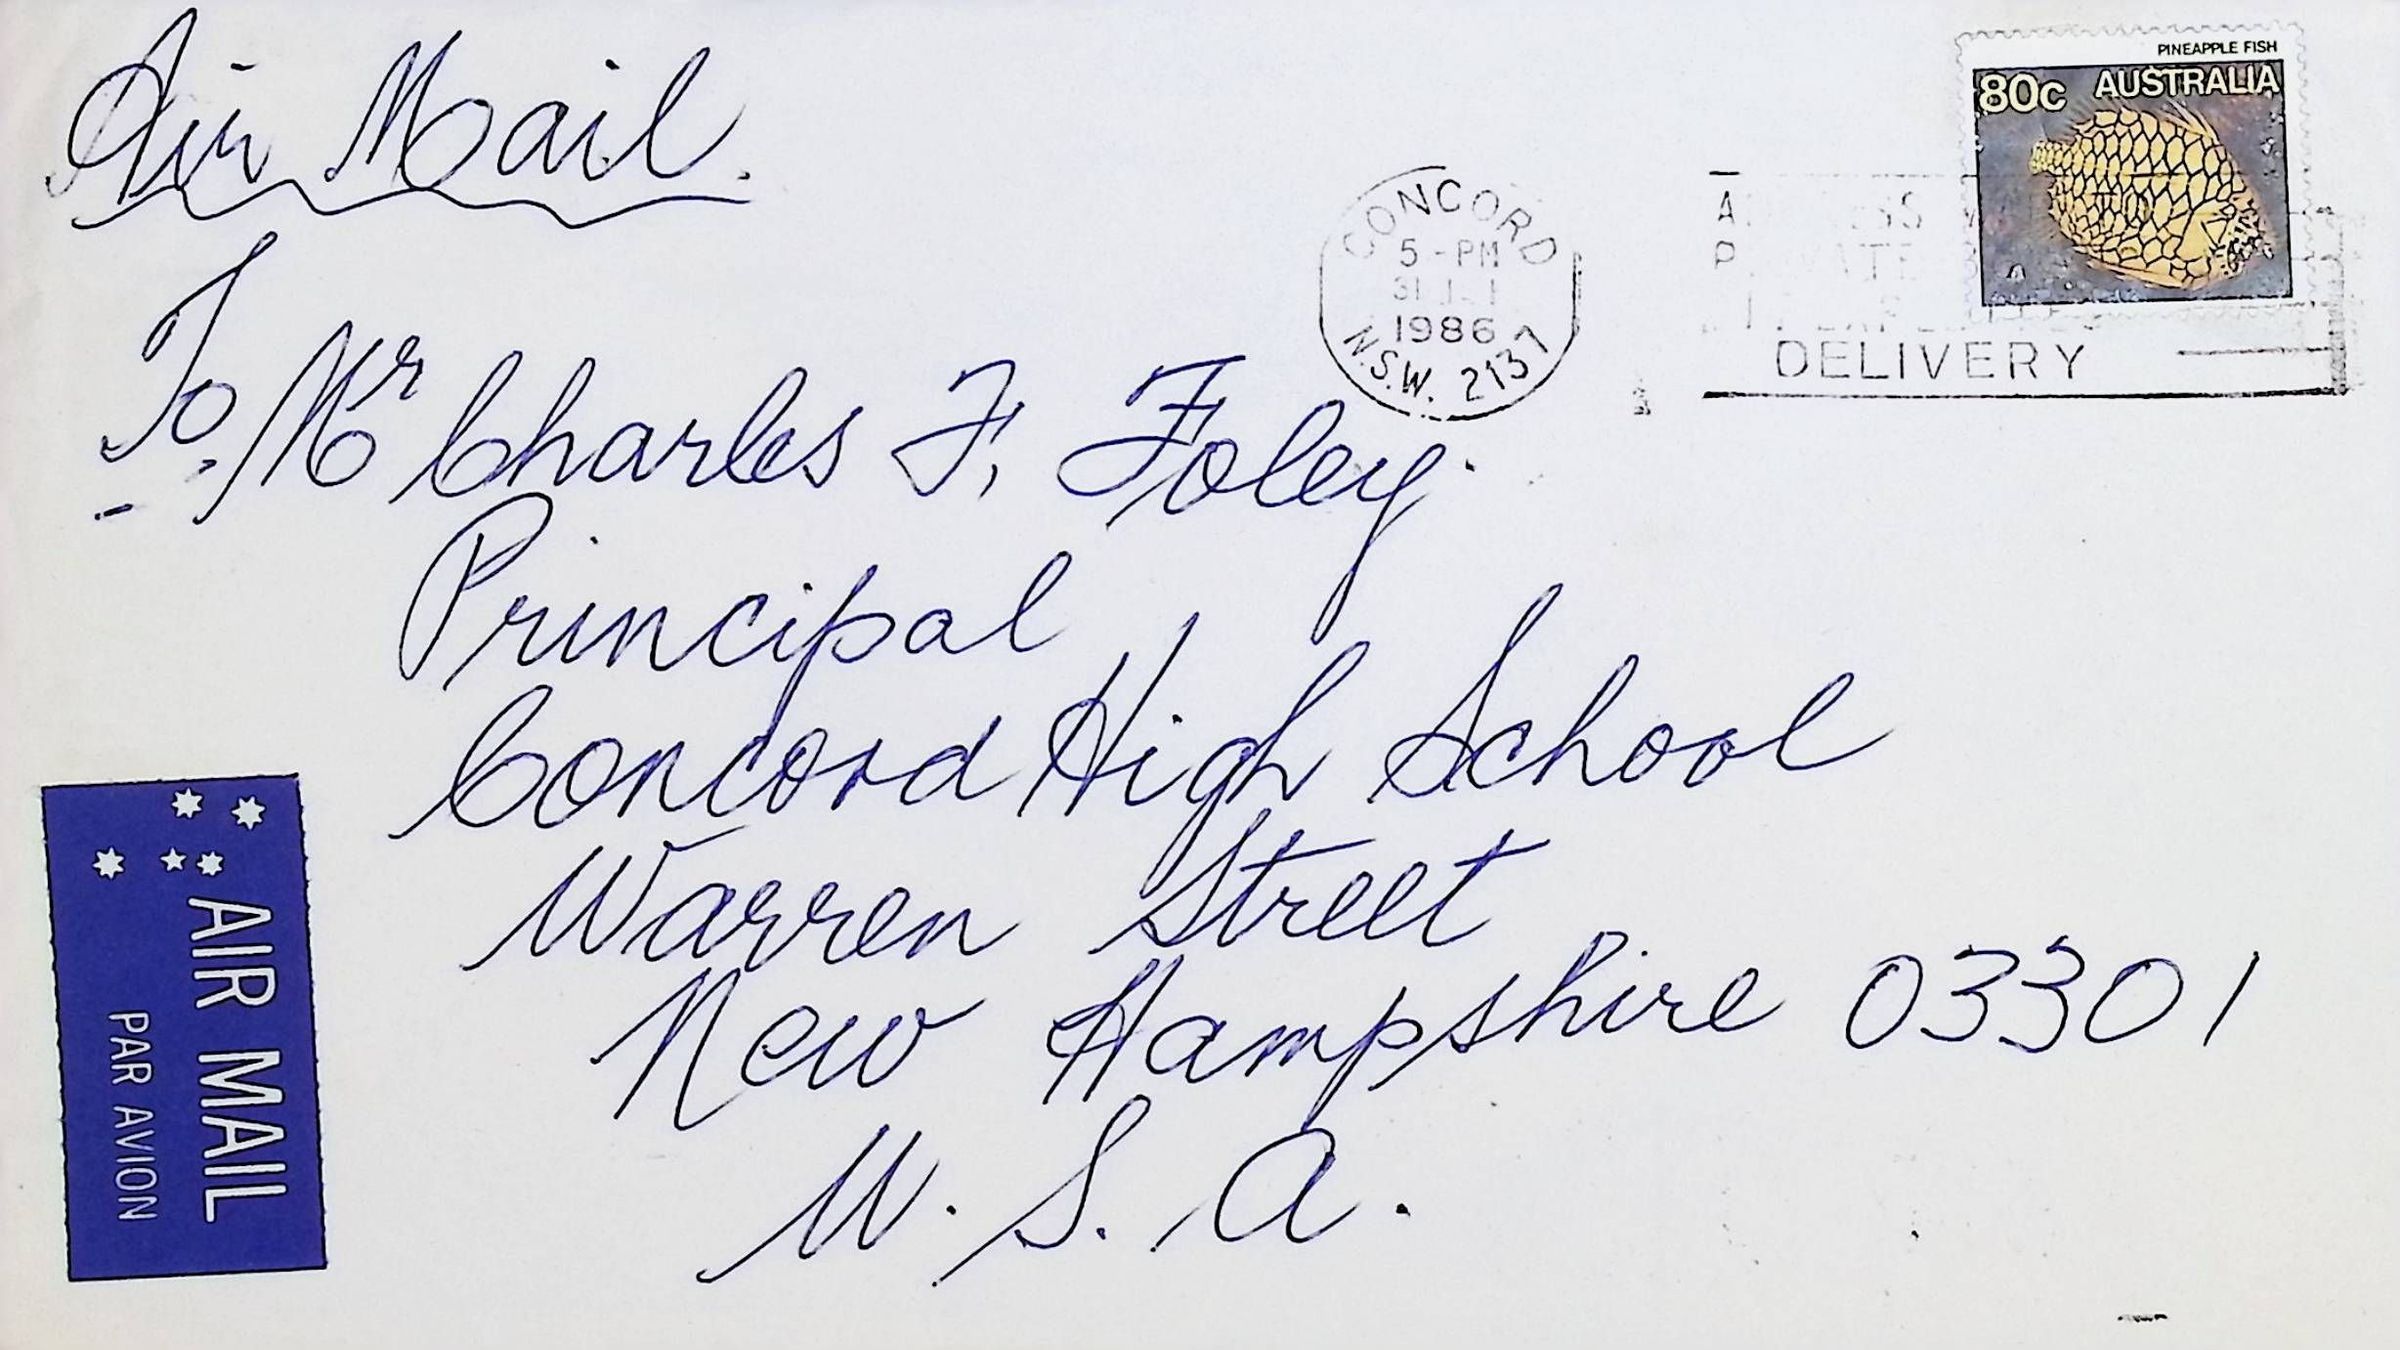 Air Mail.
PINEAPPLE FISH
80c AUSTRALIA
CONCORD
5 - PM
31
1986
N.S.W. 2137
DELIVERY
To, Mr Charles F. Foley.
Principal
Concord High School
Warren Street
New Hampshire 03301
U. S. A.
AIR MAIL
PAR AVION